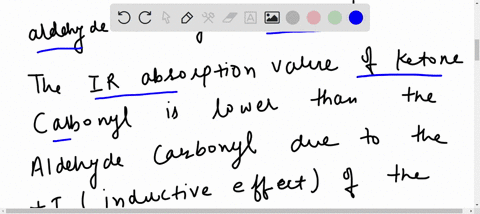 aldehyde
The IR absorption value of ketone
Carbonyl is lower than the
Aldehyde Carbonyl due to the
+I (inductive effect) of the